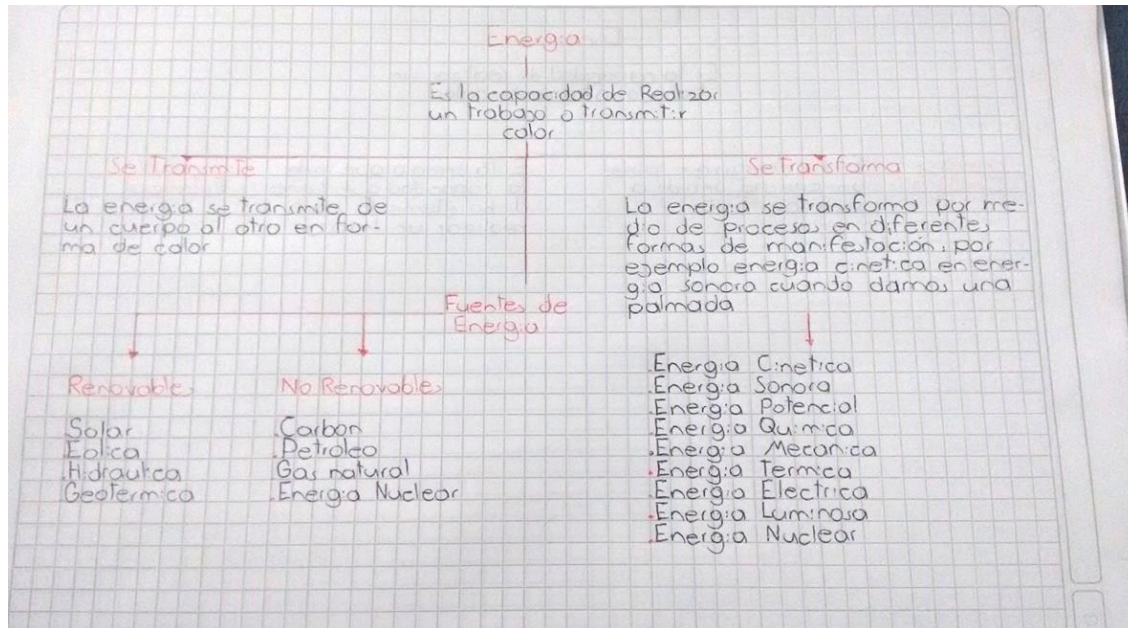 Energia
Es la capacidad de Realizar
un trabajo o transmitir
calor
Se Transmite
Se Transforma
La energia se transmite de
un cuerpo al otro en for-
ma de calor
La energia se transforma por me-
dio de procesos en diferentes
formas de manifestación, por
ejemplo energia cinetica en ener-
gia sonora cuando damos una
palmada
Fuentes de
Energia
Renovables
No Renovables
.Solar
.Eolica
.Hidraulica
.Geotermica
.Carbon
.Petroleo
.Gas natural
.Energia Nuclear
.Energia Cinetica
.Energia Sonora
.Energia Potencial
.Energia Quimica
.Energia Mecanica
.Energia Termica
.Energia Electrica
.Energia Luminosa
.Energia Nuclear